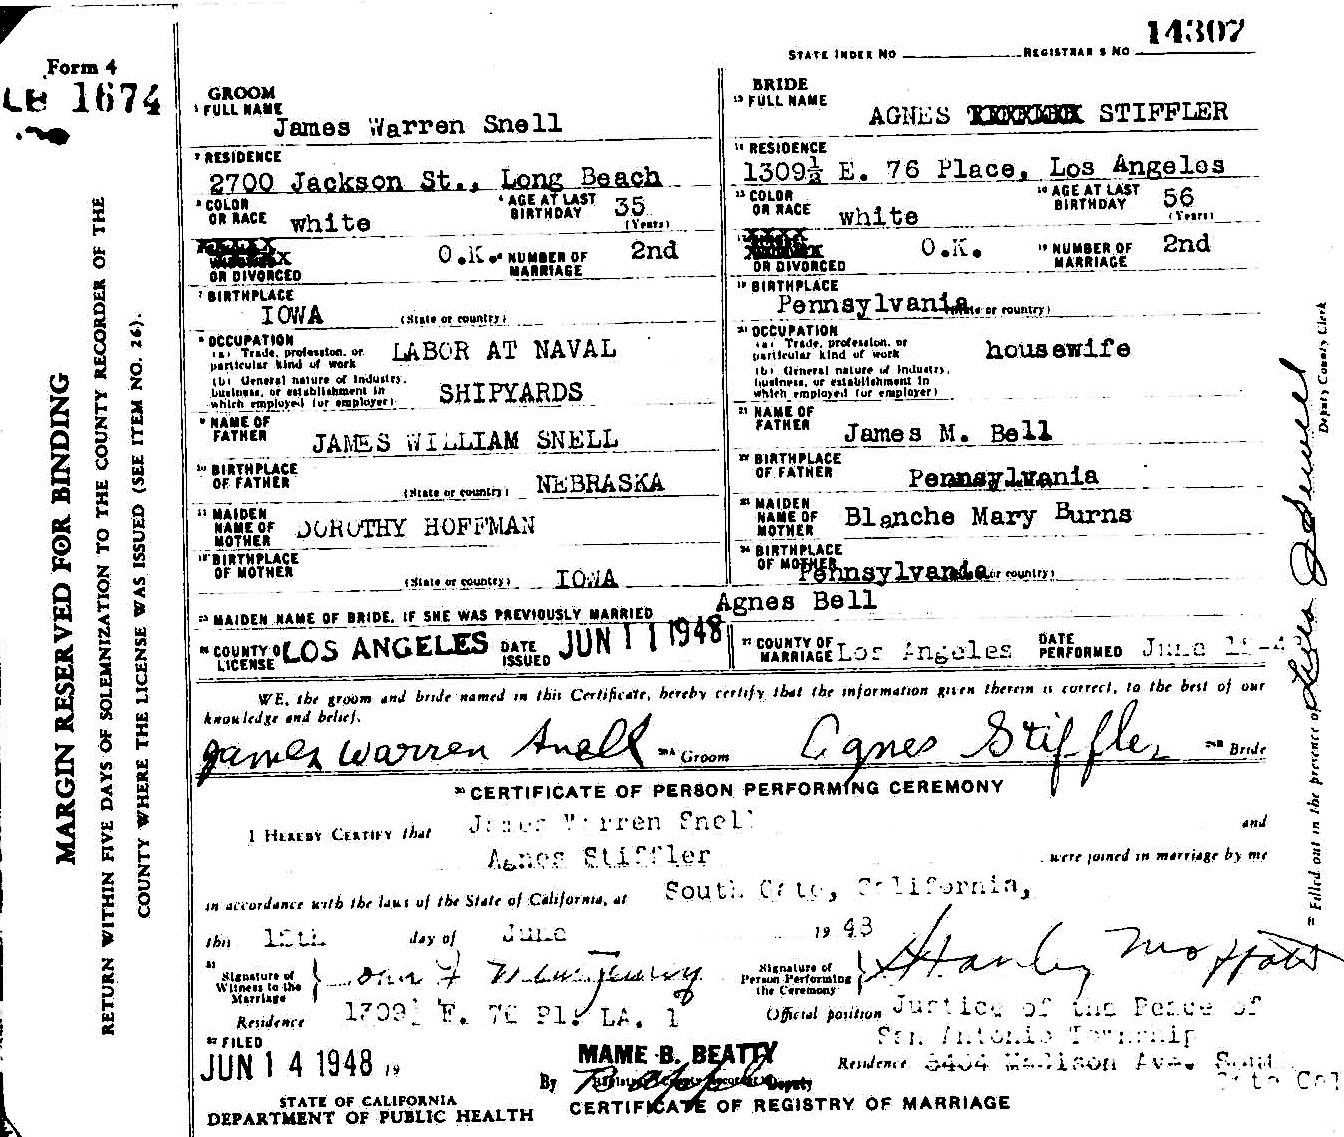 14307
STATE INDEX NO
REGISTRAR'S NO
Form 4
LB 1674
MARGIN RESERVED FOR BINDING
RETURN WITHIN FIVE DAYS OF SOLEMNIZATION TO THE COUNTY RECORDER OF THE
COUNTY WHERE THE LICENSE WAS ISSUED (SEE ITEM NO. 26).
GROOM
1 FULL NAME
James Warren Snell
2 RESIDENCE
2700 Jackson St., Long Beach
3 COLOR OR RACE white
4 AGE AT LAST BIRTHDAY 35 (Years)
OR DIVORCED O.K.
6 NUMBER OF MARRIAGE 2nd
7 BIRTHPLACE
IOWA (State or country)
8 OCCUPATION
(a) Trade, profession, or
particular kind of work LABOR AT NAVAL
(b) General nature of Industry,
business, or establishment in
which employed (or employer) SHIPYARDS
9 NAME OF FATHER JAMES WILLIAM SNELL
10 BIRTHPLACE OF FATHER (State or country) NEBRASKA
11 MAIDEN NAME OF MOTHER DOROTHY HOFFMAN
12 BIRTHPLACE OF MOTHER (State or country) IOWA
BRIDE
13 FULL NAME
AGNES STIFFLER
14 RESIDENCE
1309½ E. 76 Place, Los Angeles
15 COLOR OR RACE white
16 AGE AT LAST BIRTHDAY 56 (Years)
OR DIVORCED O.K.
18 NUMBER OF MARRIAGE 2nd
19 BIRTHPLACE
Pennsylvania (State or country)
20 OCCUPATION
(a) Trade, profession, or
particular kind of work housewife
(b) General nature of Industry,
business, or establishment in
which employed (or employer)
21 NAME OF FATHER James M. Bell
22 BIRTHPLACE OF FATHER Pennsylvania
23 MAIDEN NAME OF MOTHER Blanche Mary Burns
24 BIRTHPLACE OF MOTHER Pennsylvania (State or country)
25 MAIDEN NAME OF BRIDE, IF SHE WAS PREVIOUSLY MARRIED Agnes Bell
26 COUNTY OF LICENSE LOS ANGELES DATE ISSUED JUN 11 1948
27 COUNTY OF MARRIAGE Los Angeles DATE PERFORMED June
WE, the groom and bride named in this Certificate, hereby certify that the information given therein is correct, to the best of our
knowledge and belief.
James Warren Snell 28A Groom
Agnes Stiffler 28B Bride
CERTIFICATE OF PERSON PERFORMING CEREMONY
I HEREBY CERTIFY that James Warren Snell and
Agnes Stiffler were joined in marriage by me
in accordance with the laws of the State of California, at South Gate, California,
this day of June 1948
31 Signature of
Witness to the
Marriage
Residence 1309½ E. 76 Pl. LA. 1
Signature of
Person Performing
the Ceremony Stanley Moffatt
Official position Justice of the Peace of
San Antonio Township
Residence Madison Ave. South
Gate Cal
32 FILED
JUN 14 1948 19
MAME B. BEATTY
By
Deputy
STATE OF CALIFORNIA
DEPARTMENT OF PUBLIC HEALTH
CERTIFICATE OF REGISTRY OF MARRIAGE
Filled out in the presence of
Deputy County Clerk